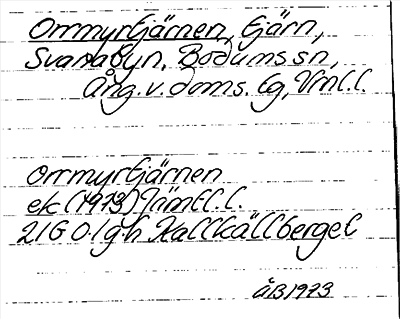 Orrmyrtjärnen, tjärn,
Svanabyn, Bodums sn,
Ång. v. doms. tg, Vml. l.
Orrmyrtjärnen
ek (1973) Jämtl. l.
21G 0.1g.h Kallkällberget
ÅB 1973